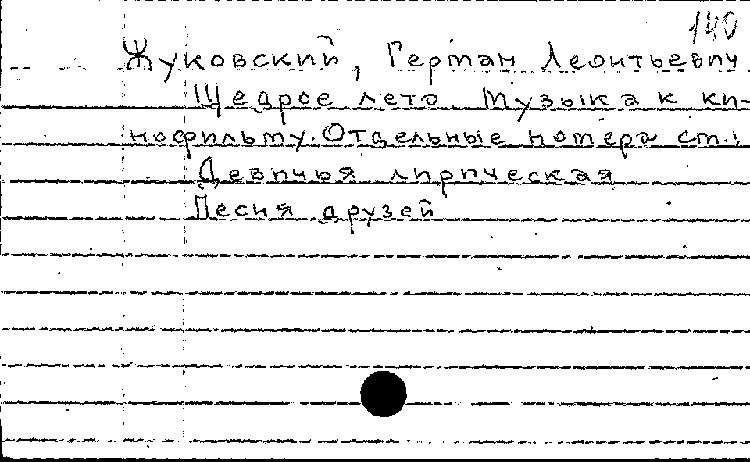 140
Жуковский, Герман Леонтьевич
Щедрое лето. Музыка к ки-
нофильму. Отдельные номера см.:
Девичья лирическая
Песня друзей